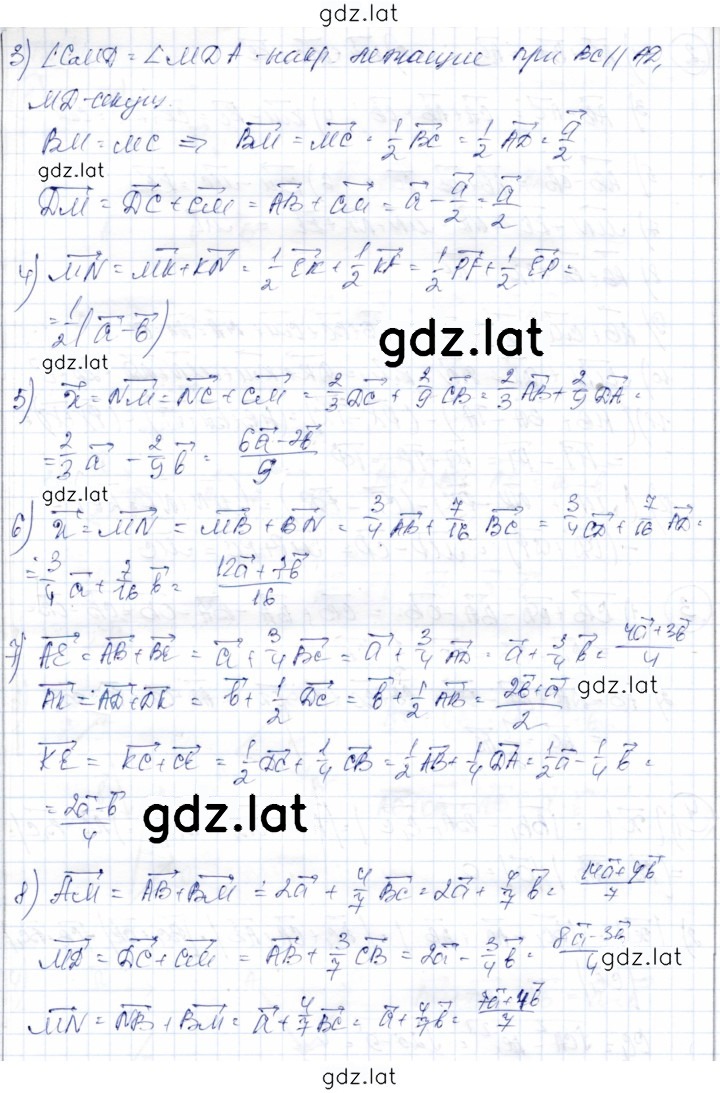 gdz.lat
3) ∠CMD = ∠MDA - накр. лежащие при BC || AD,
MD-секущ.
BM = MC ⇒ BM⃗ = MC⃗ = 1/2 BC⃗ = 1/2 AD⃗ = a⃗/2
gdz.lat
DM⃗ = DC⃗ + CM⃗ = AB⃗ + CM⃗ = a⃗ - a⃗/2 = a⃗/2
4) MN⃗ = MK⃗ + KN⃗ = 1/2 EK⃗ + 1/2 KF⃗ = 1/2 PF⃗ + 1/2 EP⃗ =
= 1/2 (a⃗ - b⃗)
gdz.lat
gdz.lat
5) x⃗ = NM⃗ = NC⃗ + CM⃗ = 2/3 DC⃗ + 2/9 CB⃗ = 2/3 AB⃗ + 2/9 DA⃗ =
= 2/3 a⃗ - 2/9 b⃗ = (6a⃗ - 2b⃗)/9
gdz.lat
6) x⃗ = MN⃗ = MB⃗ + BN⃗ = 3/4 AB⃗ + 7/16 BC⃗ = 3/4 CD⃗ + 7/16 AD⃗ =
= 3/4 a⃗ + 7/16 b⃗ = (12a⃗ + 7b⃗)/16
7) AE⃗ = AB⃗ + BE⃗ = a⃗ + 3/4 BC⃗ = a⃗ + 3/4 AD⃗ = a⃗ + 3/4 b⃗ = (4a⃗ + 3b⃗)/4
AK⃗ = AD⃗ + DK⃗ = b⃗ + 1/2 DC⃗ = b⃗ + 1/2 AB⃗ = (2b⃗ + a⃗)/2
gdz.lat
KE⃗ = KC⃗ + CE⃗ = 1/2 DC⃗ + 1/4 CB⃗ = 1/2 AB⃗ + 1/4 DA⃗ = 1/2 a⃗ - 1/4 b⃗ =
= (2a⃗ - b⃗)/4
gdz.lat
8) AM⃗ = AB⃗ + BM⃗ = 2a⃗ + 4/7 BC⃗ = 2a⃗ + 4/7 b⃗ = (14a⃗ + 4b⃗)/7
MD⃗ = DC⃗ + CM⃗ = AB⃗ + 3/7 CB⃗ = 2a⃗ - 3/4 b⃗ = (8a⃗ - 3b⃗)/4
gdz.lat
MN⃗ = NB⃗ + BM⃗ = a⃗ + 4/7 BC⃗ = a⃗ + 4/7 b⃗ = (7a⃗ + 4b⃗)/7
gdz.lat